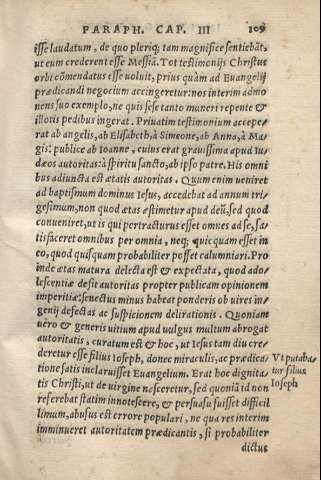 PARAPH. CAP. III 109
isse laudatum, de quo pleriq; tam magnifice sentiebãt,
ut eum crederent esse Messiã. Tot testimonijs Christus
orbi cõmendatus esse uoluit, prius quàm ad Euangelij
prædicandi negocium accingeretur: nos interim admo
nens suo exemplo, ne quis sese tanto muneri repente &
illotis pedibus ingerat. Priuatim testimonium accepe-
rat ab angelis, ab Elisabeth, à Simeone, ab Anna, à Ma
gis: publice ab Ioanne, cuius erat grauissima apud Iu-
dæos autoritas: à spiritu sancto, ab ipso patre. His omni
bus adiuncta est ætatis autoritas. Quum enim ueniret
ad baptismum dominus Iesus, accedebat ad annum tri-
gesimum, non quod ætas æstimetur apud deũ, sed quod
conueniret, ut is qui pertracturus esset omnes ad se, sa-
tisfaceret omnibus per omnia, neq; quicquam esset in
eo, quod quisquam probabiliter posset calumniari. Pro
inde ætas matura delecta est & expectata, quod ado-
lescentiæ desit autoritas propter publicam opinionem
imperitiæ: senectus minus habeat ponderis ob uires in-
genij defectas ac suspicionem delirationis. Quoniam
uero & generis uitium apud uulgus multum abrogat
autoritatis, curatum est & hoc, ut Iesus tam diu cre-
deretur esse filius Ioseph, donec miraculis, ac prædica-
tione satis inclaruisset Euangelium. Erat hoc dignita-
tis Christi, ut de uirgine nasceretur, sed quoniã id non
referebat statim innotescere, & persuasu fuisset diffici
limum, abusus est errore populari, ne qua res interim
imminueret autoritatem prædicantis, si probabiliter
dictus
Vt putaba
tur filius
Ioseph